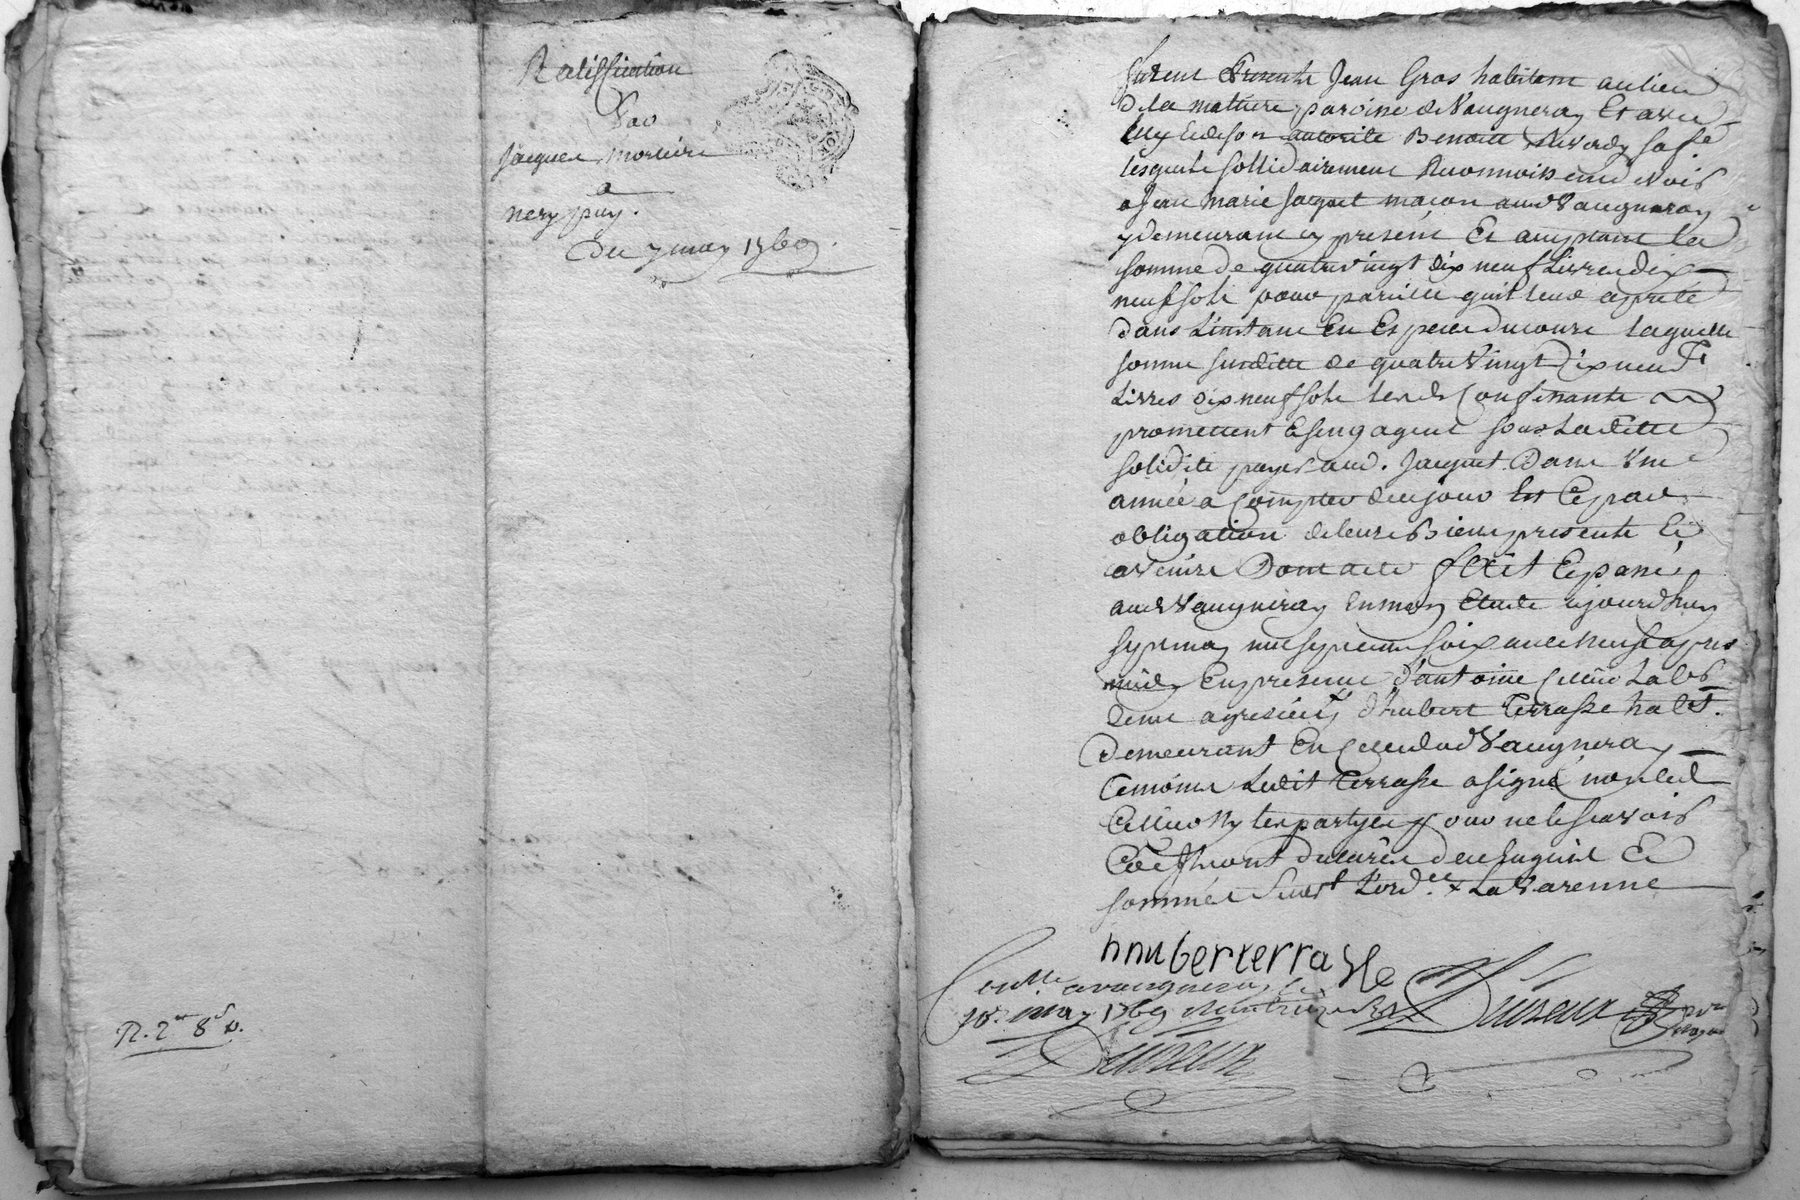 Ratiffication
Par
Jacques morliere
a
nery puy.
Du 7 may 1769.
R. 2 8
furent Presents Jean Gros habitant au lieu
de la mature paroisse de Vaugneray Et avec
luy Et de son autorité Benoite sa fe
lesquels sollidairement Reconnoissent devoir
a Jean marie Jaquet maçon aud Vaugneray
y demeurant cy present Et acceptant la
somme de quatre vingt dix neuf Livres dix
neuf sols pour pareille quil leur a preté
dans Linstant En Espece du cours laquelle
somme susditte de quatre Vingt dix neuf
Livres dix neuf sols lesds Confessants
promettent Esengagent sous Laditte
solidité payer aud. Jacquet Dans Une
année a Compter de ce jour Et Ce par
obligation de leurs Biens presents Et
avenirs Dont acte fait Et passé
aud Vaugneray En mon Etude ajourdhuy
sept may mil sept cent soixante neuf apres
midy En presence d'antoine Cellier Lab
deme a greziex d'hubert Terrasse habt.
Demeurant En Vaugneray
Temoins Ledit Terrasse a signé non led
Cellier Ny les partyes pour ne le scavoir
De ce Enquis Et
sommés Suivt Lord.ce x La Varenne
hnubert terrasse
Conlle a vaugneray le
10. may 1769